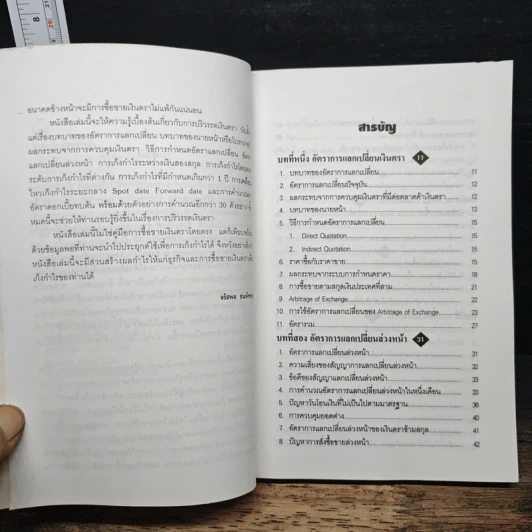 8
อนาคตข้างหน้าจะมีการซื้อขายเงินตราไม่แพ้กันแน่นอน
หนังสือเล่มนี้จะให้ความรู้เบื้องต้นเกี่ยวกับการปริวรรตเงินตรา
แต่เรื่องบทบาทของอัตราการแลกเปลี่ยน บทบาทของนายหน้าหรือ
ผลกระทบจากการควบคุมเงินตรา วิธีการกำหนดอัตราแลกเปลี่ยน
แลกเปลี่ยนล่วงหน้า การเก็งกำไรระหว่างเงินสองสกุล การเก็งกำไรโดย
ระดับการเก็งกำไรที่ต่างกัน การเก็งกำไรที่มีกำหนดเกินกว่า 1 ปี
ไหวเก็งกำไรระยะกลาง Spot date Forward date และการคำนวณ
อัตราดอกเบี้ยทบต้น พร้อมด้วยตัวอย่างการคำนวณอีกกว่า 30 ตัวอย่าง
หมดนี้จะช่วยให้ท่านรอบรู้ยิ่งขึ้นในเรื่องการปริวรรตเงินตรา
หนังสือเล่มนี้ไม่ใช่คู่มือการซื้อขายเงินตราโดยตรง แต่ก็เพียบพร้อม
ด้วยข้อมูลพอที่ท่านจะนำไปประยุกต์ใช้เพื่อการเก็งกำไรได้ จึงหวังอย่างยิ่งว่า
หนังสือเล่มนี้จะมีส่วนสร้างผลกำไรให้แก่ธุรกิจและการซื้อขายเงินตรา
เก็งกำไรของท่านได้
สารบัญ
บทที่หนึ่ง อัตราการแลกเปลี่ยนเงินตรา 11
1. บทบาทของอัตราการแลกเปลี่ยน 11
2. อัตราการแลกเปลี่ยนปัจจุบัน 12
3. ผลกระทบจากการควบคุมเงินตราที่มีต่อตลาดค้าเงินตรา 12
4. บทบาทของนายหน้า 13
5. วิธีการกำหนดอัตราการแลกเปลี่ยน 15
1. Direct Quotation 15
2. Indirect Quotation 15
6. ราคาซื้อกับราคาขาย 15
7. ผลกระทบจากระบบการกำหนดราคา 17
8. การซื้อขายตามสกุลเงินประเทศที่สาม 21
9. Arbitrage of Exchange 22
10. การใช้อัตราการแลกเปลี่ยนของ Arbitrage of Exchange 22
11. อัตรารวม 27
บทที่สอง อัตราการแลกเปลี่ยนล่วงหน้า 31
1. อัตราการแลกเปลี่ยนล่วงหน้า 31
2. ความเสี่ยงของสัญญาการแลกเปลี่ยนล่วงหน้า 32
3. ข้อดีของสัญญาแลกเปลี่ยนล่วงหน้า 33
4. การคำนวณอัตราการแลกเปลี่ยนล่วงหน้าในหนึ่งเดือน 33
5. ปัญหาวันโอนเงินที่ไม่เป็นไปตามมาตรฐาน 36
6. การควบคุมยอดต่าง 40
7. อัตราการแลกเปลี่ยนล่วงหน้าของเงินตราข้ามสกุล 41
8. ปัญหาการสั่งซื้อขายล่วงหน้า 42